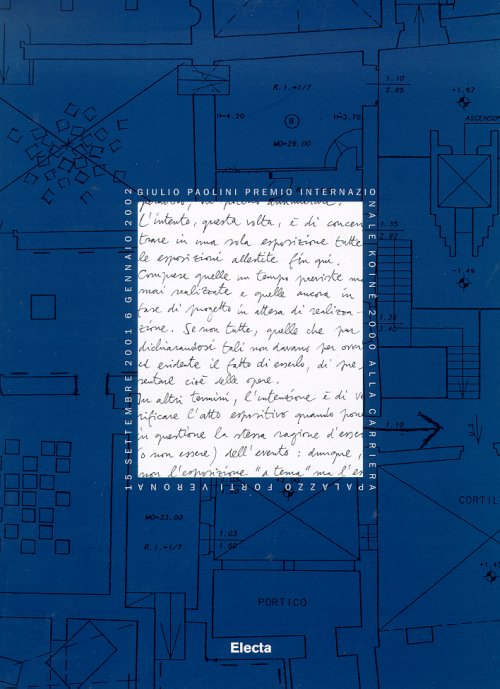 R.I.=1/7
1.10
2.85
+1.67
H=4.20
B
H=3.70
ASCENSOR
MO=26.00
GIULIO PAOLINI PREMIO INTERNAZIO
NALE KOINÈ 2000 ALLA CARRIERA
PALAZZO FORTI VERONA
15 SETTEMBRE 2001 6 GENNAIO 2002
L'intento, questa volta, è di concen
trare in una sola esposizione tutte
le esposizioni allestite fin qui.
Comprese quelle un tempo previste ma
mai realizzate e quelle ancora in
fase di progetto in attesa di realizza-
zione. Se non tutte, quelle che pur
dichiarandosi tali non davano per ovvio
ed evidente il fatto di esserlo, di pre-
sentare cioè delle opere.
In altri termini, l'intenzione è di ve
rificare l'atto espositivo quando pone
in questione la stessa ragione d'esser
(o non essere) dell'evento: dunque,
non l'esposizione "a tema" ma l'es
1.35
2.82
+1.49
1.30
3.40
+2.00
MO=23.00
R.I.=1/7
1.03
1.60
CORTIL
+1.45
PORTICO
Electa